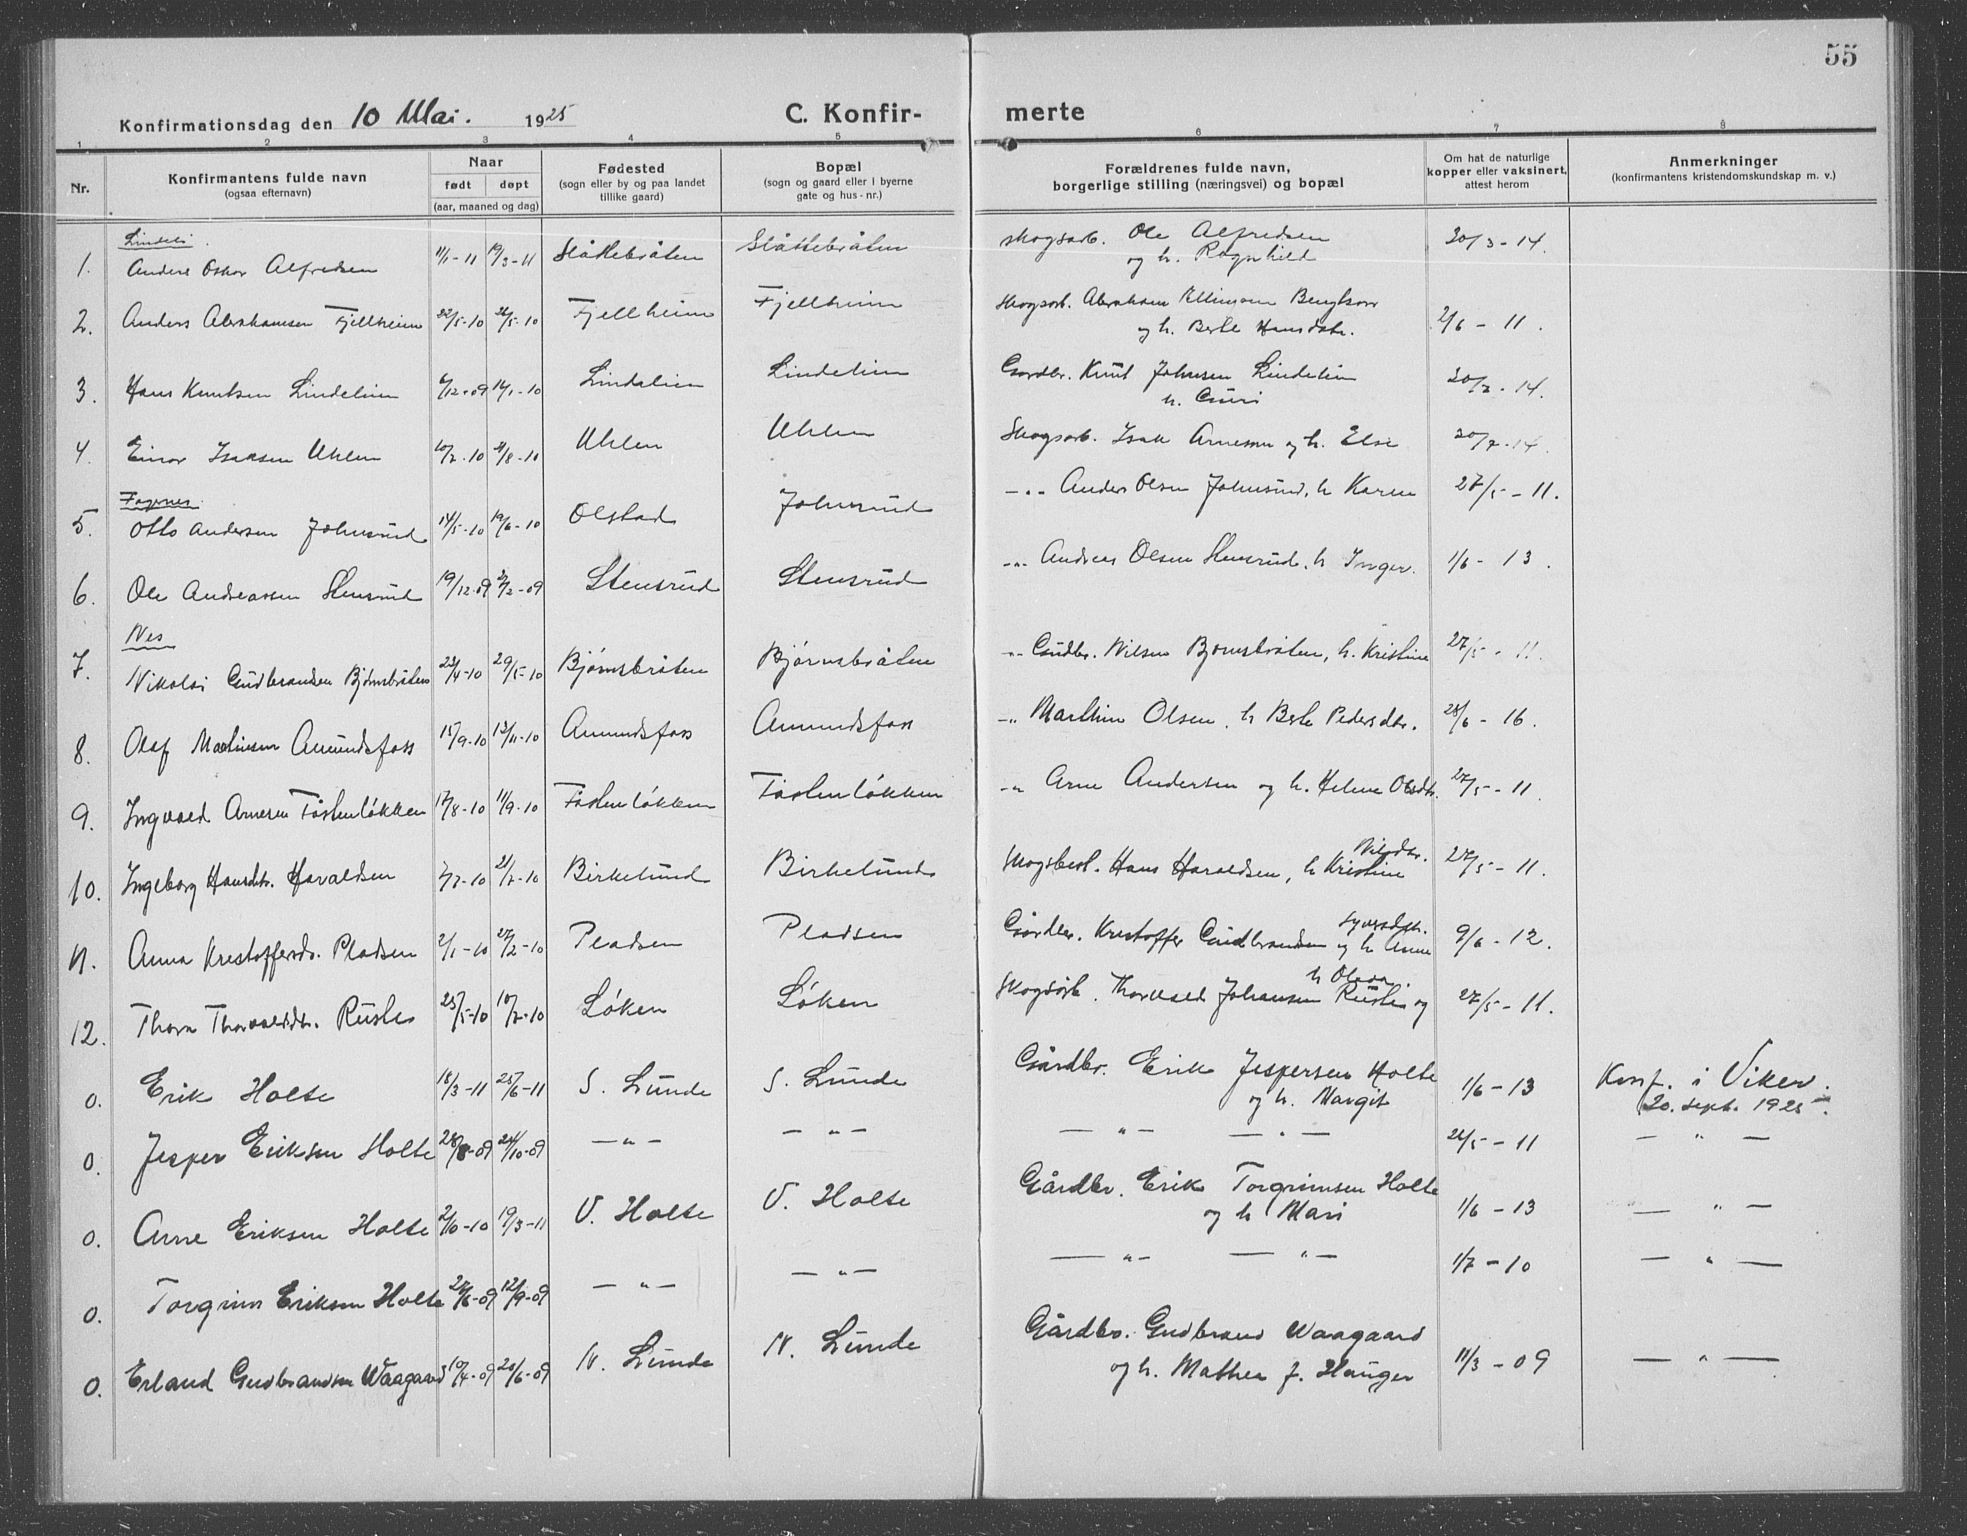 55
Konfirmationsdag den 10 Mai. 1925
C. Konfir- merte
1 2 3 4 5 6 7 8
Nr.
Konfirmantens fulde navn (ogsaa efternavn)
Naar født døpt (aar, maaned og dag)
Fødested (sogn eller by og paa landet tillike gaard)
Bopæl (sogn og gaard eller i byerne gate og hus-nr.)
Forældrenes fulde navn, borgerlige stilling (næringsvei) og bopæl
Om hat de naturlige kopper eller vaksinert, attest herom
Anmerkninger (konfirmantens kristendomskundskap m. v.)
Lindeli.
1. Anders Oskar Alfredsen 11/1-11 19/3-11 Slåttebråten Slåttebråten skogsarb. Ole Alfredsen og h. Ragnhild 20/3-14.
2. Anders Abrahamsen Fjellheim 22/5-10 /5-10 Fjellheim Fjellheim Skogsarb. Abraham Ellingsen Bengtson og h. Berte Hansdatr. 2/6-11.
3. Hans Knutsen Lindelien 6/12-09 16/1-10 Lindelien Lindelien Gardbr. Knut Johnsen Lindelien h. Guri 20/7-14.
4. Einar Isaksen Uhlen 10/7-10 21/8-10 Uhlen Uhlen Skogsarb. Isak Arnesen og h. Else 20/7-14.
Fagernes.
5. Otto Andersen Johnsrud 14/5-10 19/6-10 Olstad Johnsrud -"- Anders Olsen Johnsrud, h Karen 27/5-11.
6. Ole Andreassen Stensrud 19/12-09 /2-09 Stensrud Stensrud -"- Andreas Olsen Stensrud, h Inger. 1/6-13.
Nes
7. Nikolai Gudbrandsen Bjørnsbråten 23/4-10 29/5-10 Bjørnsbråten Bjørnsbråten -"- Gudbr. Nilsen Bjørnsbråten, h. Kristine 27/5-11.
8. Olaf Martinsen Amundsfoss 15/9-10 13/11-10 Amundsfoss Amundsfoss -" Marthin Olsen, h Berte Pedersdtr. 28/6-16.
9. Ingvald Arnesen Tostenløkken 17/8-10 11/9-10 Tostenløkken Tostenløkken -" Arne Andersen og h. Helene Olsdtr. 27/5-11.
10. Ingeborg Hansdtr. Haraldsen /7-10 31/7-10 Birkelund Birkelund Skogsbest. Hans Haraldsen, h Kristine Nilsdtr. 27/5-11.
11. Anna Kristoffersd. Pladsen 2/1-10 27/2-10 Pladsen Pladsen Gårdbr. Kristoffer Gudbrandsen og h Anne Syversdtr. 9/6-12.
12. Thora Thorvaldsdtr. Rustes 25/5-10 10/7-10 Løken Løken Skogsarb. Thorvald Johansen Ruste og h Olava. 27/5-11.
0. Erik Holte 18/3-11 25/6-11 S. Lunde S. Lunde Gårdbr. Erik Jespersen Holte og h. Margit 1/6-13 Konf. i Viker. 20. sept. 1925.
0. Jesper Eriksen Holte 28/8-09 24/10-09 -"- -"- -"- -"- 22/5-11 -"-
0. Arne Eriksen Holte 2/10-10 19/3-11 V. Holte V. Holte Gårdbr. Erik Torgrimsen Holte og h Mari 1/6-13 -"-
0. Torgrim Eriksen Holte 24/6-09 12/9-09 -"- -"- -"- -"- 1/7-10 -"-
0. Erland Gudbrandsen Waagaard 10/4-09 20/6-09 N. Lunde N. Lunde Gårdbr. Gudbrand Waagaard og h. Mathea f. Hauger 11/3-09 -"-